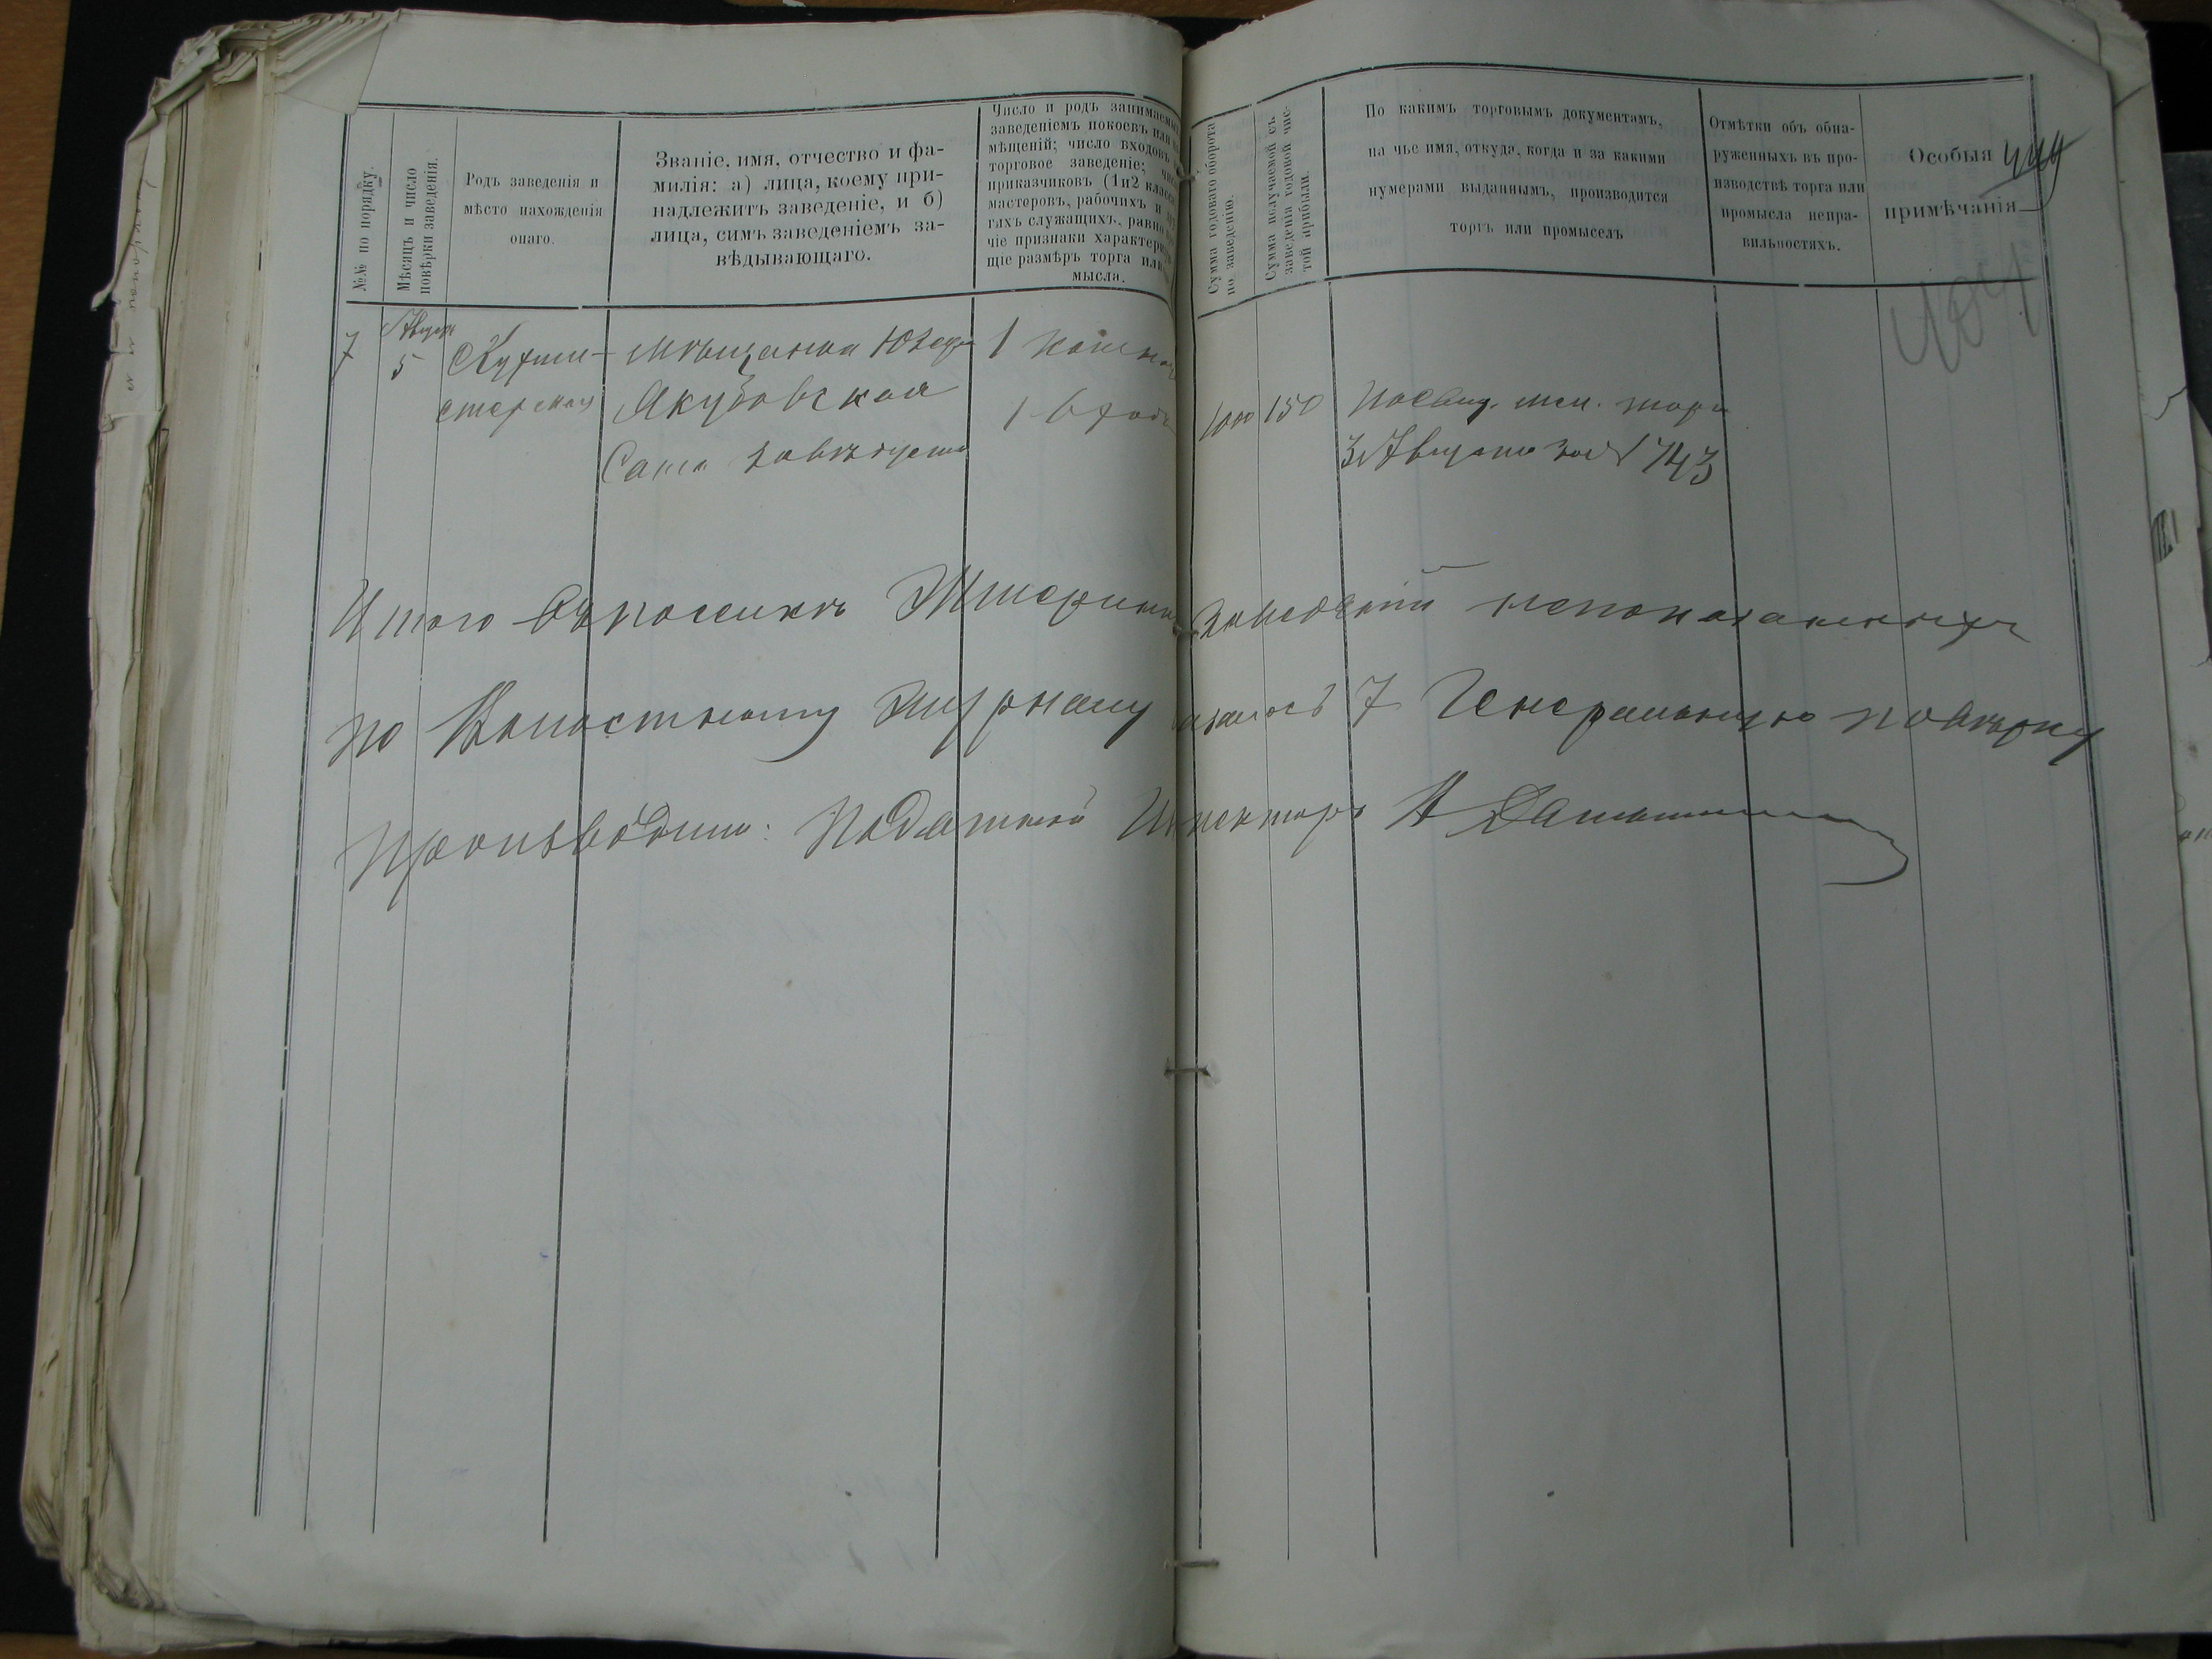 №№ по порядку.
Мѣсяцъ и число
повѣрки заведенія.
Родъ заведенія и
мѣсто нахожденія
онаго.
Званіе, имя, отчество и фа-
милія: а) лица, коему при-
надлежитъ заведеніе, и б)
лица, симъ заведеніемъ за-
вѣдывающаго.
Число и родъ занимаемыхъ
заведеніемъ покоевъ или
мѣщеній; число входовъ
торговое заведеніе;
приказчиковъ (1 и 2 класса
мастеровъ, рабочихъ и
гихъ служащихъ, равно
чіе признаки характеризую
щіе размѣръ торга или
мысла.
Сумма годоваго оборота
по заведенію.
Сумма получаемой съ
заведенія годовой чис-
той прибыли.
По какимъ торговымъ документамъ,
на чье имя, откуда, когда и за какими
нумерами выданнымъ, производится
торгъ или промыселъ
Отмѣтки объ обна-
руженныхъ въ про-
изводствѣ торга или
промысла непра-
вильностяхъ.
Особыя
примѣчанія
7
5
Кухми-
стерская
Мѣщанка
Якубовская
Сама завѣдуетъ
1
1 входъ
1000
150
3 Августа 1743
Итого въ заведеній непоказанныхъ
по журналу 7 Генеральную повѣрку
производилъ: Податной Инспекторъ